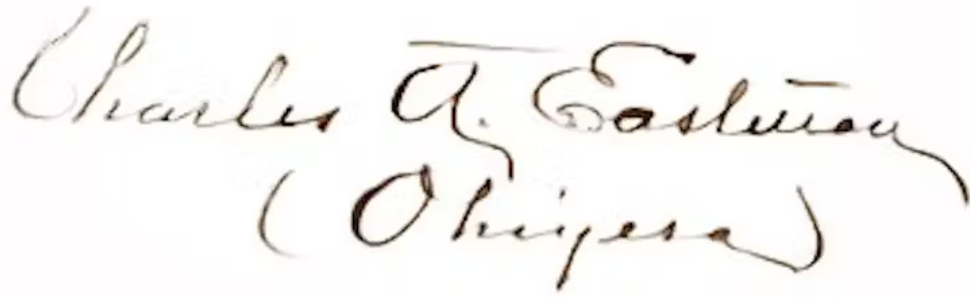 Charles A. Eastman
(Ohiyesa)